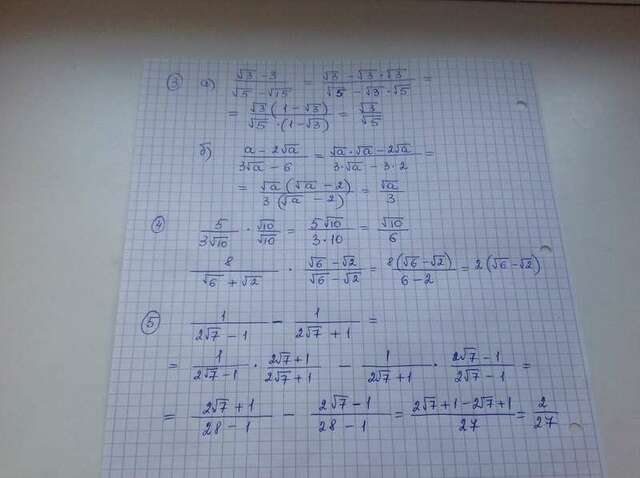 ③ а) (√3 − 3)/(√5 − √15) = (√3 − √3·√3)/(√5 − √3·√5) =
= (√3(1 − √3))/(√5·(1 − √3)) = √3/√5
б) (a − 2√a)/(3√a − 6) = (√a·√a − 2√a)/(3·√a − 3·2) =
= (√a(√a − 2))/(3(√a − 2)) = √a/3
④ 5/(3√10) · √10/√10 = 5√10/(3·10) = √10/6
8/(√6 + √2) · (√6 − √2)/(√6 − √2) = 8(√6 − √2)/(6 − 2) = 2(√6 − √2)
⑤ 1/(2√7 − 1) − 1/(2√7 + 1) =
= 1/(2√7 − 1) · (2√7 + 1)/(2√7 + 1) − 1/(2√7 + 1) · (2√7 − 1)/(2√7 − 1) =
= (2√7 + 1)/(28 − 1) − (2√7 − 1)/(28 − 1) = (2√7 + 1 − 2√7 + 1)/27 = 2/27